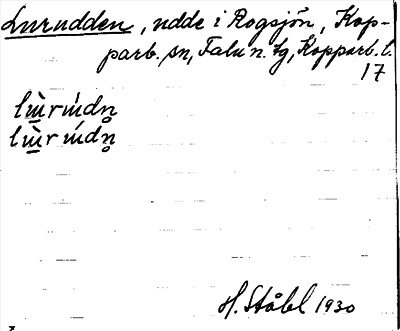 Lurudden, udde i Rogsjön, Kop-
parb. sn, Falu n. tg, Kopparb. l.
17
H. Ståhl 1930